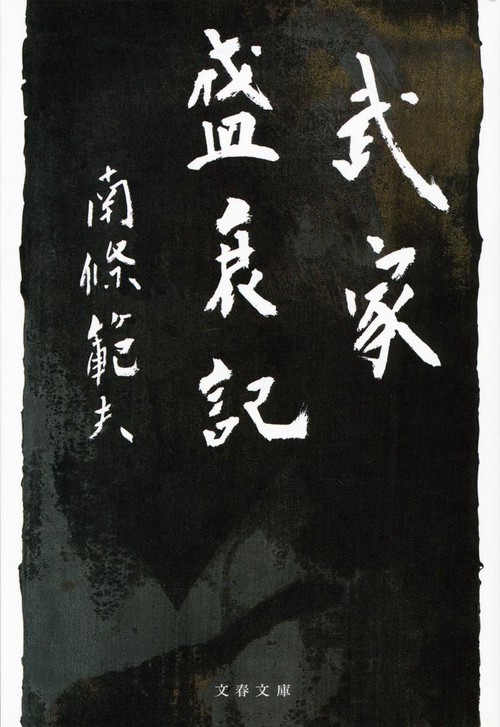 武家
盛衰記
南條範夫
文春文庫